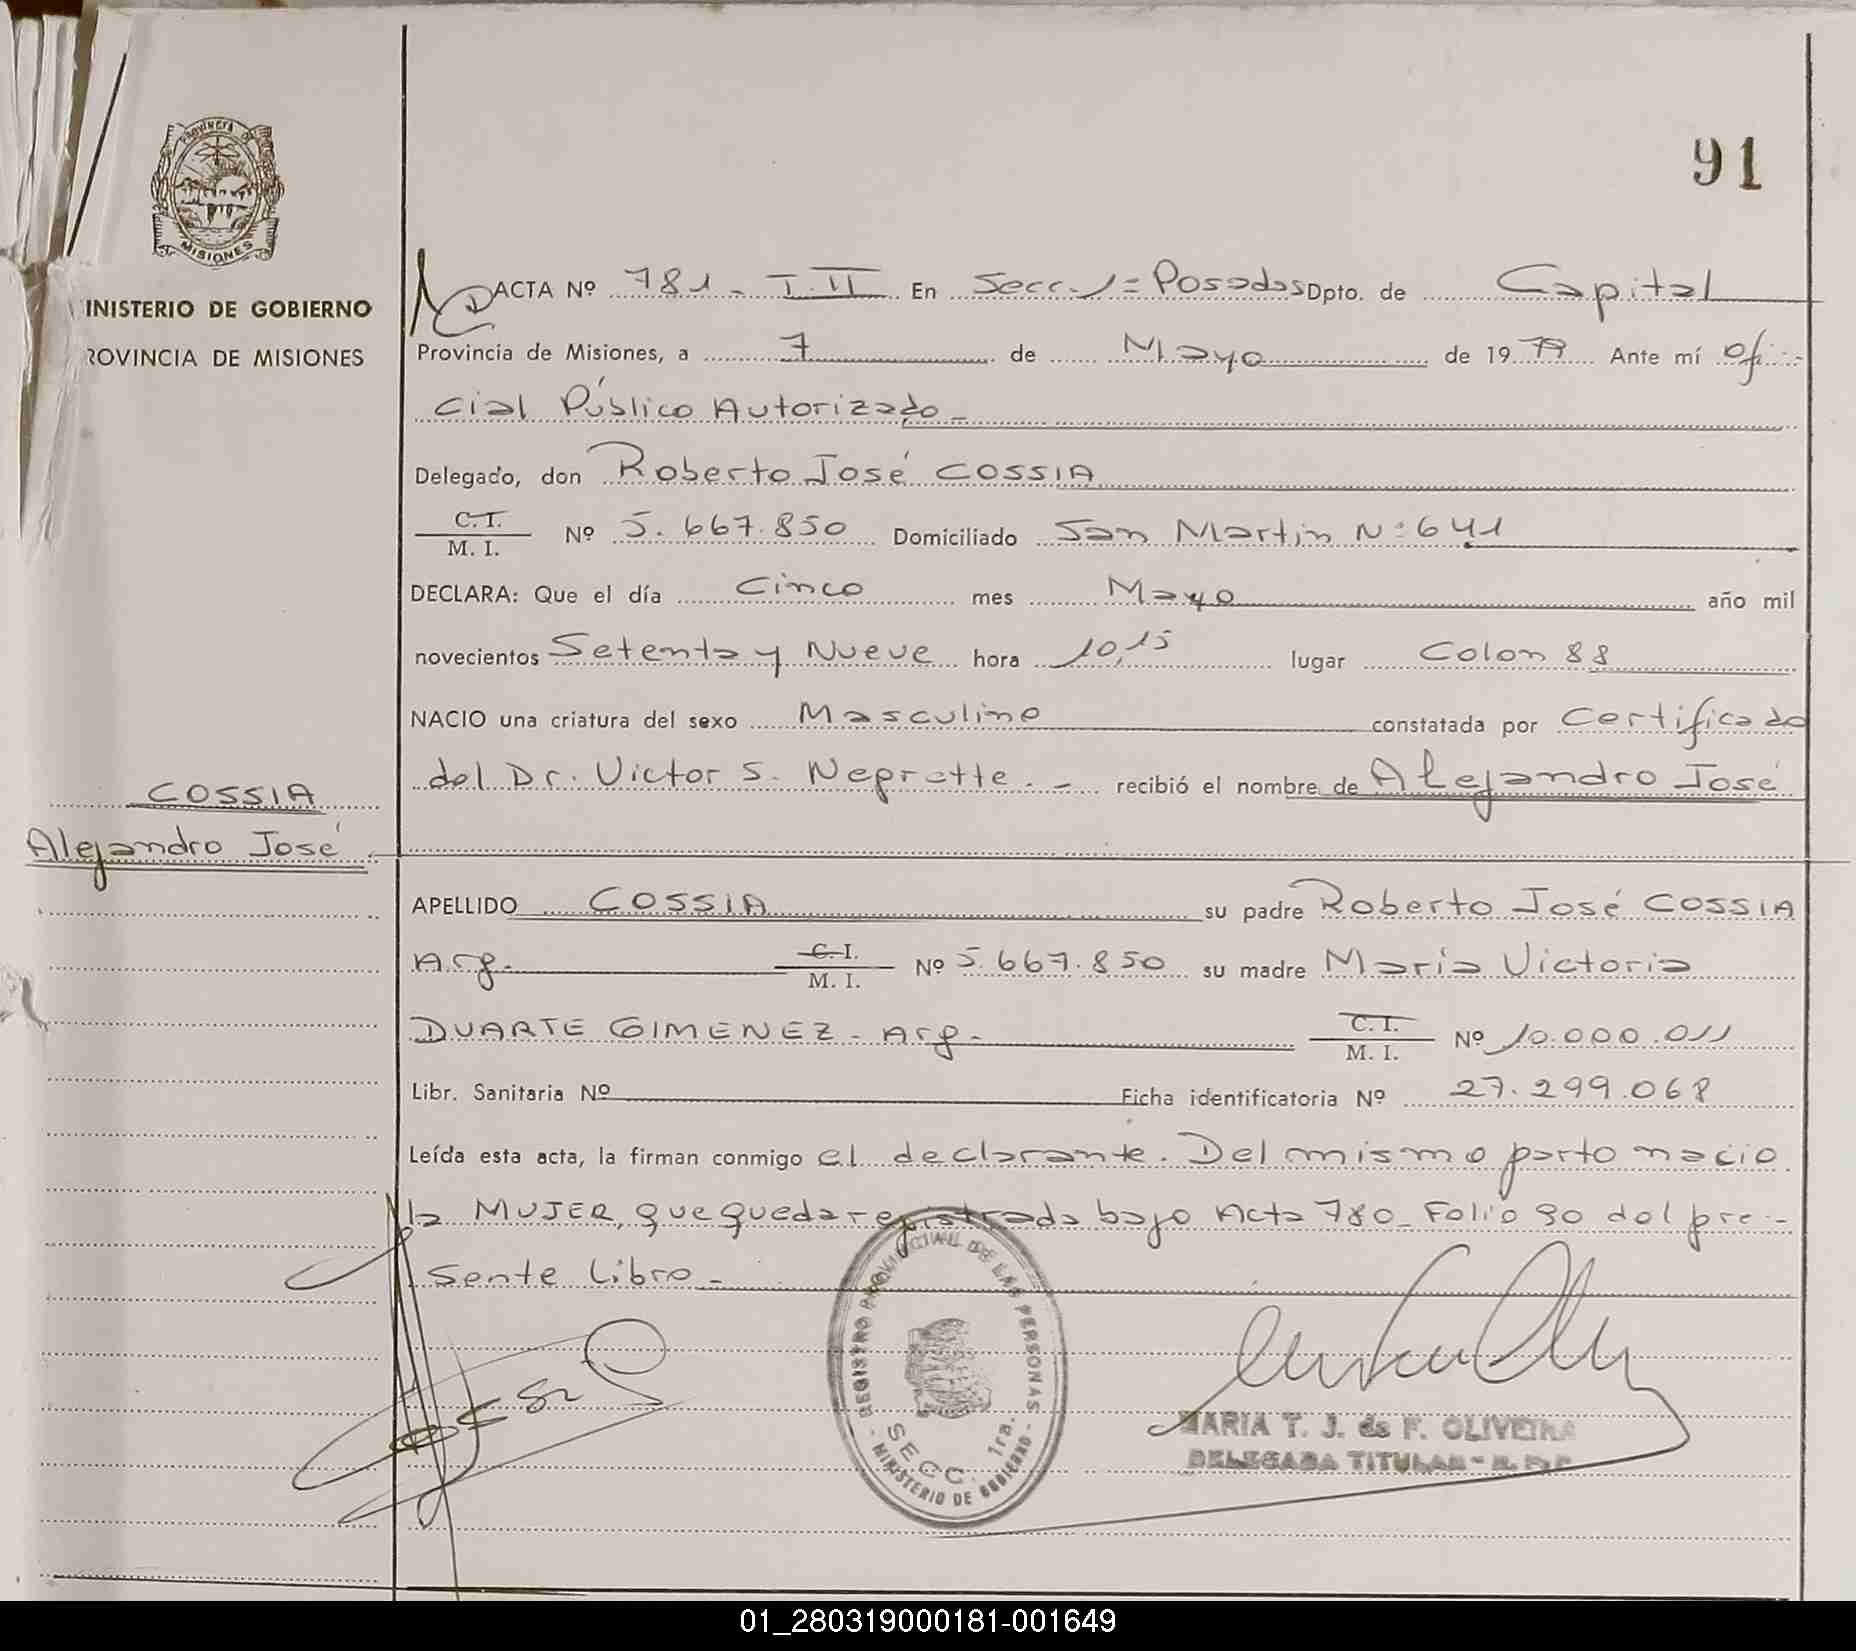 91
PROVINCIA DE
MISIONES
INISTERIO DE GOBIERNO
ROVINCIA DE MISIONES
ACTA Nº 781 - T. II En Secc. 1ª Posadas Dpto. de Capital
Provincia de Misiones, a 7 de Mayo de 1979 Ante mí Ofi-
cial Público Autorizado -
Delegado, don Roberto José COSSIA
C.I. / M. I. Nº 5.667.850 Domiciliado San Martin Nº 641
DECLARA: Que el día Cinco mes Mayo año mil
novecientos Setenta y Nueve hora 10,15 lugar Colon 88
NACIO una criatura del sexo Masculino constatada por Certificado
del Dr. Victor S. Neprette. - recibió el nombre de Alejandro José
COSSIA
Alejandro José
APELLIDO COSSIA su padre Roberto José COSSIA
Arg. C.I. / M. I. Nº 5.667.850 su madre María Victoria
DUARTE GIMENEZ - Arg. C.I. / M. I. Nº 10.000.011
Libr. Sanitaria Nº Ficha identificatoria Nº 27.299.068
Leída esta acta, la firman conmigo el declarante. Del mismo parto nacio
la MUJER, que queda registrada bajo Acta 780 - Folio 90 del pre-
sente Libro -
REGISTRO PROVINCIAL DE LAS PERSONAS
SECC. 1ra.
- MINISTERIO DE GOBIERNO -
MARIA T. J. de F. OLIVEIRA
DELEGADA TITULAR - R. P. P.
01_280319000181-001649